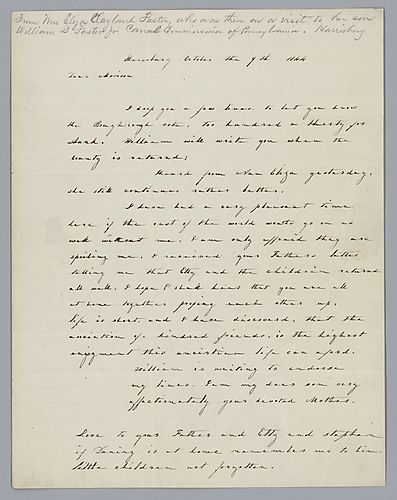 From Mrs Eliza Clayland Foster, who was then on a visit to her son
William B. Foster, Jr Canal Commissioner of Pennsylvania. Harrisburg
Harrisburg October the 9th 1844
Dear Morison
I drop you a few lines to let you know
the Boughrough vote, too hundred a thirty for
Shunk. William will write you when the
County is returned;
Heard from Nan Eliza yesterday,
she still continues rather better.
I have had a very pleasent time
here if the rest of the world would go on as
well without me. I am only affraid they are
spoiling me, I received your Fathers letter
telling me that Etty and the children returned
all well. I hope I shall hear that you are all
at home together proping each other up.
Life is short, and I have discovered, that the
association of kindred friends, is the highest
enjoyment this uncirtian life can afford.
William is writing to enclose
my lines. I am my dear son very
affectionately your devoted Mother.
Love to your Father and Etty and Stephen
if Duning is at home remember me to him.
little children not forgotten.